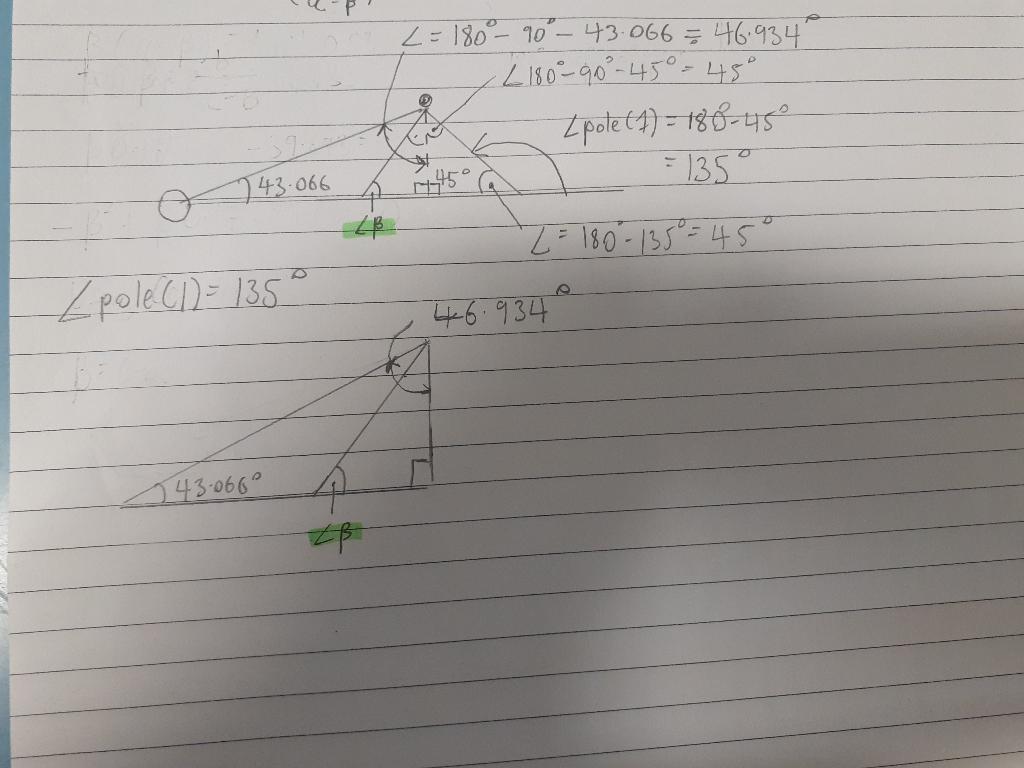 ∠ = 180° - 90° - 43.066 = 46.934°
∠180° - 90° - 45° = 45°
∠pole(1) = 180° - 45°
= 135°
43.066
45°
∠β
∠ = 180° - 135° = 45°
∠pole(1) = 135°
46.934°
43.066°
∠β